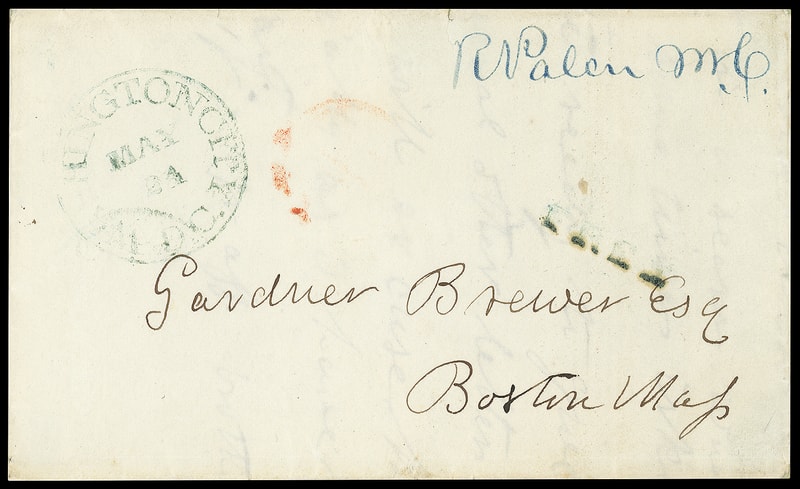 R Palen M.C.
INGTON CITY
MAY
Gardner Brewer Esq
Boston Mass